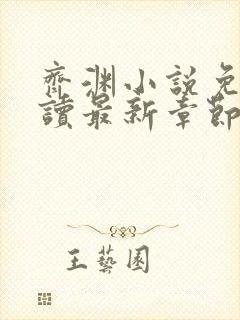 齊渊小說免
讀最新章節
王藝園